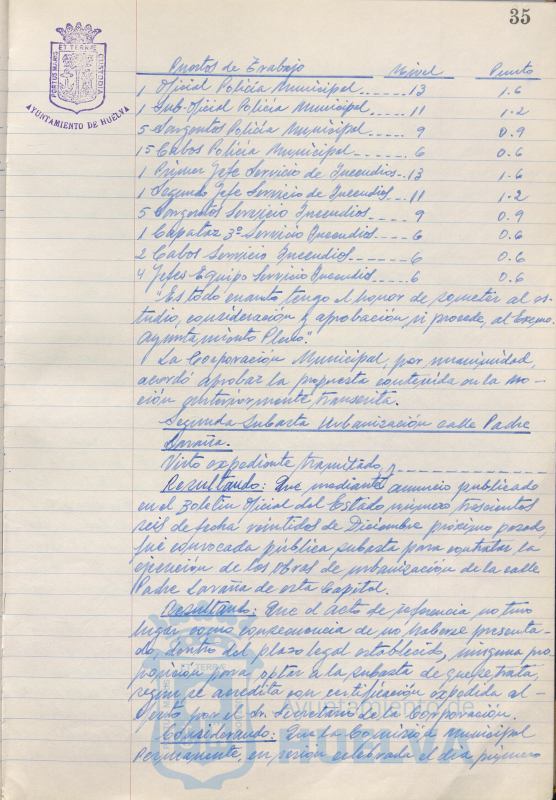 35
PORTUS MARIS ET TERRÆ CUSTODIA
AYUNTAMIENTO DE HUELVA
Puestos de Trabajo Nivel Punto
1 Oficial Policía Municipal.....13 1.6
1 Sub-Oficial Policía Municipal....11 1.2
5 Sargentos Policía Municipal....9 0.9
15 Cabos Policía Municipal.....6 0.6
1 Primer Jefe Servicio de Incendios..13 1.6
1 Segundo Jefe Servicio de Incendios..11 1.2
5 Sargentos Servicio Incendios....9 0.9
1 Capataz 3º Servicio Incendios....6 0.6
2 Cabos Servicio Incendios.....6 0.6
4 Jefes Equipo Servicio Incendios..6 0.6
"Es todo cuanto tengo el honor de someter al es-
tudio, consideración y aprobación, si procede, al Excmo.
Ayuntamiento Pleno."
La Corporación Municipal, por unanimidad,
acordó aprobar la propuesta contenida en la mo-
ción anteriormente transcrita.
Segunda subasta Urbanización calle Padre
Laraña.
Visto expediente tramitado, y
Resultando: Que mediante anuncio publicado
en el Boletín Oficial del Estado, número trescientos
seis de fecha veintidos de Diciembre próximo pasado,
fué convocada pública subasta para contratar la
ejecución de las obras de urbanización de la calle
Padre Laraña de esta Capital.
Resultando: Que el acto de referencia no tuvo
lugar como consecuencia de no haberse presenta-
do, dentro del plazo legal establecido, ninguna pro
posición para optar a la subasta de que se trata,
según se acredita con certificación expedida al
efecto por el Sr. Secretario de la Corporación.
Considerando: Que la Comisión Municipal
Permanente, en sesión celebrada el día primero
ET TERRIS
Ayuntamiento de
HUELVA